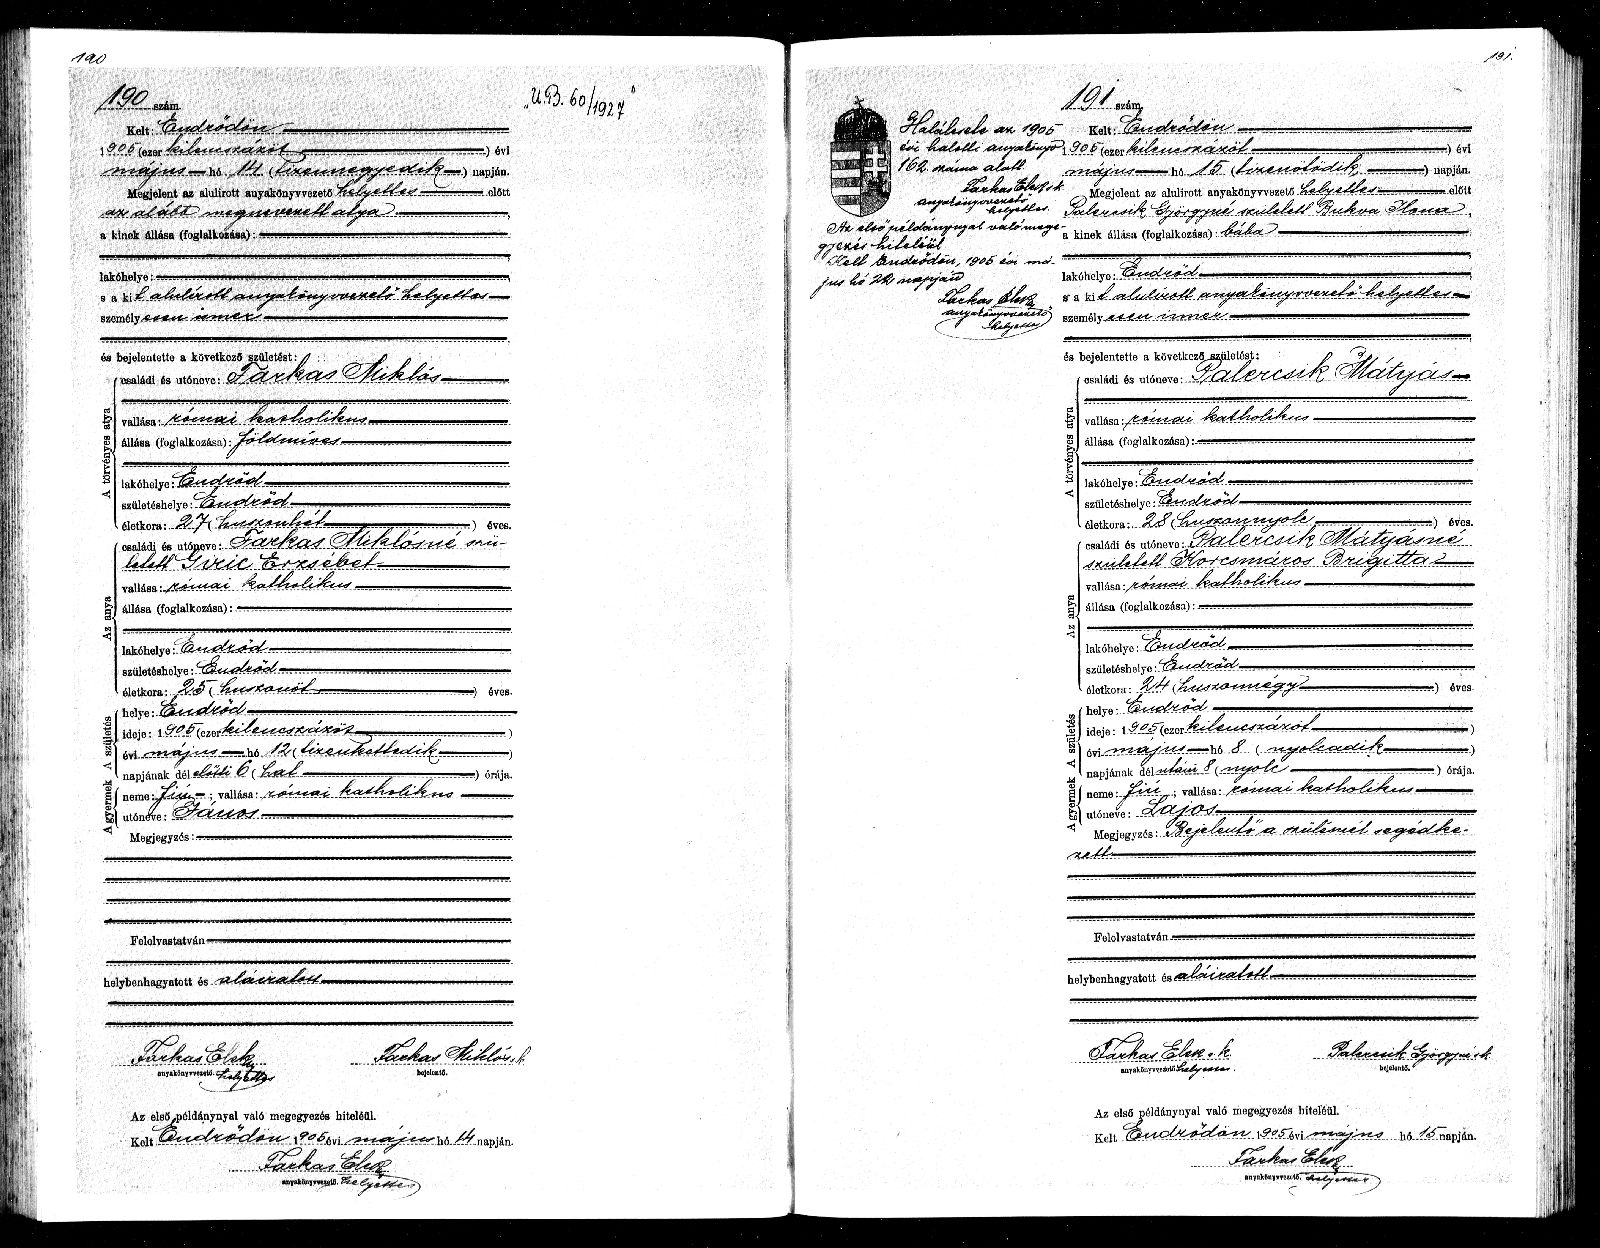 190
190 szám.
„U.B. 60/1927"
Kelt: Endrődön
1905 (ezer kilencszázöt) évi
május hó 14 (tizennegyedik) napján.
Megjelent az alulirott anyakönyvvezető helyettes előtt
az alább megnevezett atya,
a kinek állása (foglalkozása):
lakóhelye:
s a kit alulírott anyakönyvvezető helyettes
személyesen ismer
és bejelentette a következő születést:
A törvényes atya
családi és utóneve: Farkas Miklós
vallása: római katholikus
állása (foglalkozása): földmíves
lakóhelye: Endrőd
születéshelye: Endrőd
életkora: 27 (huszonhét) éves.
Az anya
családi és utóneve: Farkas Miklósné szü-
letett Giric Erzsébet
vallása: római katholikus
állása (foglalkozása):
lakóhelye: Endrőd
születéshelye: Endrőd
életkora: 25 (huszonöt) éves.
A születés
helye: Endrőd
ideje: 1905 (ezer kilencszázöt)
évi május hó 12 (tizenkettedik)
napjának dél előtti 6 (hat) órája.
A gyermek
neme: fiú; vallása: római katholikus
utóneve: János
Megjegyzés:
Felolvastatván
helybenhagyatott és aláiratott
Farkas Elek
anyakönyvvezető helyettes
Farkas Miklós s.k.
bejelentő.
Az első példánynyal való megegyezés hiteléül.
Kelt Endrődön 1905 évi május hó 14 napján.
Farkas Elek
anyakönyvvezető. helyettes
191.
191 szám.
Halálesete az 1905
évi halotti anyakönyv
162 száma alatt
Farkas Elek s.k.
anyakönyvvezető
helyettes.
Az első példánynyal való mege-
gyezés hiteléül
Kelt Endrődön, 1905 évi má-
jus hó 22 napján
Farkas Elek
anyakönyvvezető
helyettes
Kelt: Endrődön
1905 (ezer kilencszázöt) évi
május hó 15 (tizenötödik) napján.
Megjelent az alulirott anyakönyvvezető helyettes előtt
Palercsik Györgyné született Bukva Ilona,
a kinek állása (foglalkozása): bába
lakóhelye: Endrőd
s a kit alulírott anyakönyvvezető helyettes
személyesen ismer
és bejelentette a következő születést:
A törvényes atya
családi és utóneve: Palercsik Mátyás
vallása: római katholikus
állása (foglalkozása):
lakóhelye: Endrőd
születéshelye: Endrőd
életkora: 28 (huszonnyolc) éves.
Az anya
családi és utóneve: Palercsik Mátyásné
született Korcsmáros Brigitta
vallása: római katholikus
állása (foglalkozása):
lakóhelye: Endrőd
születéshelye: Endrőd
életkora: 24 (huszonnégy) éves
A születés
helye: Endrőd
ideje: 1905 (ezer kilencszázöt)
évi május hó 8 (nyolcadik)
napjának dél utáni 8 (nyolc) órája.
A gyermek
neme: fiú; vallása: római katholikus
utóneve: Lajos
Megjegyzés: Bejelentő a szülésnél segédke-
zett.
Felolvastatván
helybenhagyatott és aláiratott
Farkas Elek s.k.
anyakönyvvezető helyettes.
Palercsik Györgyné s.k.
bejelentő.
Az első példánynyal való megegyezés hiteléül.
Kelt Endrődön 1905 évi május hó 15 napján.
Farkas Elek
anyakönyvvezető. helyettes